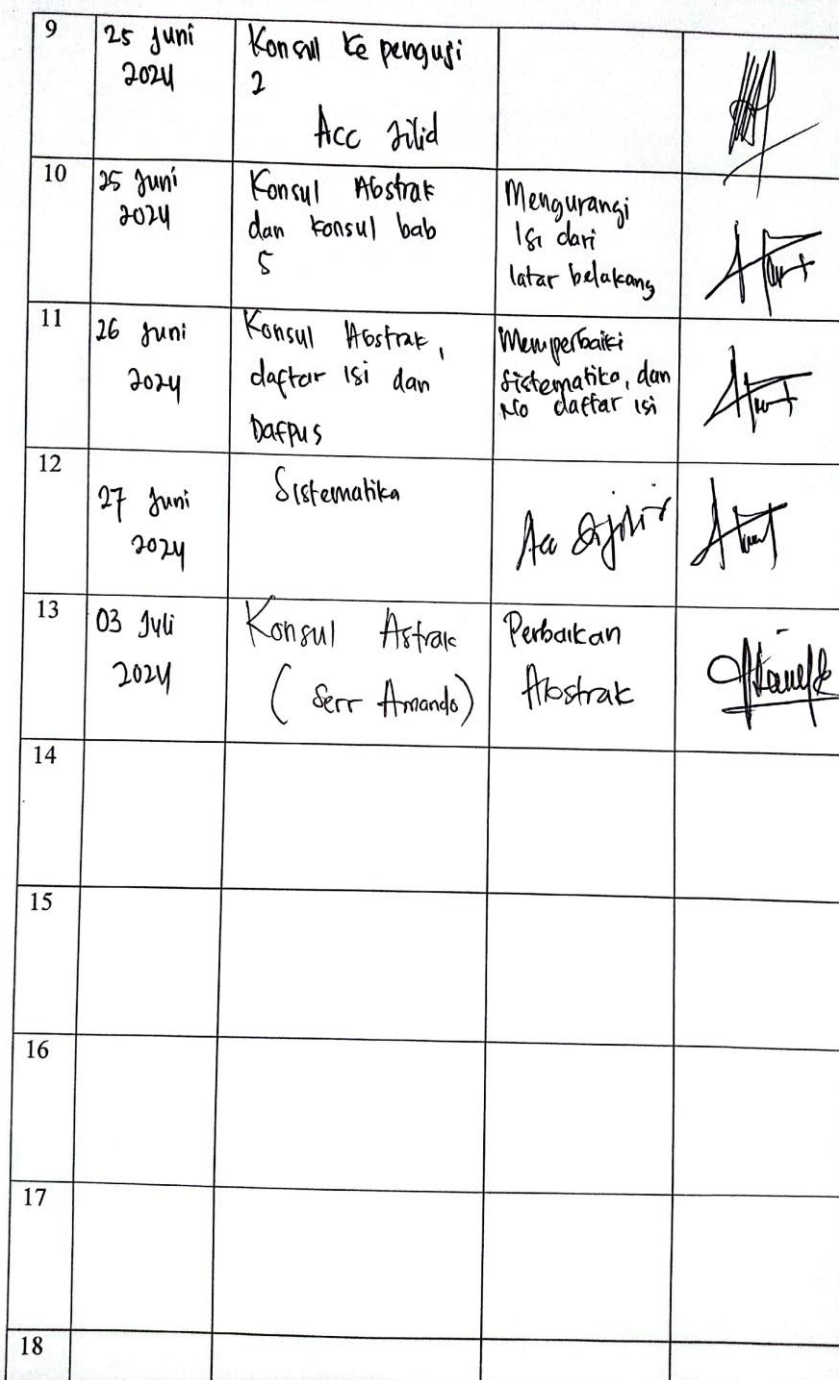 9
25 Juni
2024
Konsul ke penguji
2
Acc Jilid
10
25 Juni
2024
Konsul Abstrak
dan konsul bab
5
Mengurangi
Isi dari
latar belakang
11
26 Juni
2024
Konsul Abstrak,
daftar isi dan
Dafpus
Memperbaiki
Sistematika, dan
No daftar isi
12
27 Juni
2024
Sistematika
Acc
13
03 Juli
2024
Konsul Astrak
(Serr Amando)
Perbaikan
Abstrak
14
15
16
17
18